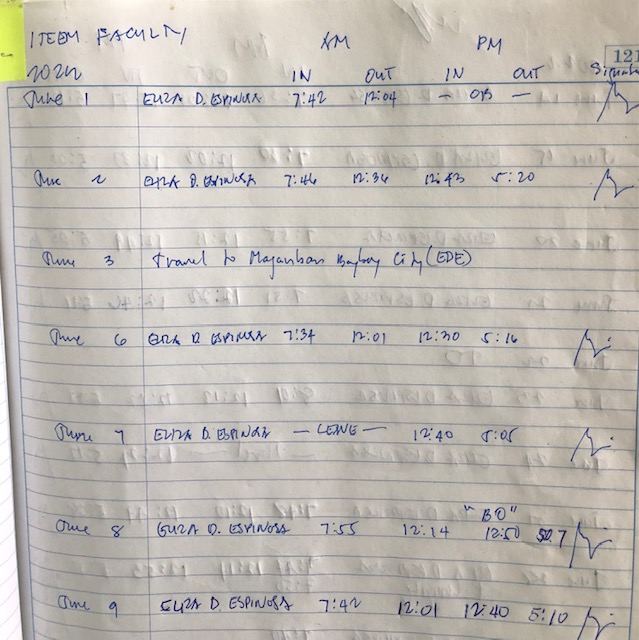 ITEEM FACULTY AM PM 121
2022 IN OUT IN OUT
June 1 ELIZA D. ESPINOSA 7:42 12:04 — OB —
June 2 ELIZA D. ESPINOSA 7:46 12:36 12:43 5:20
June 3 Travel to Baybay City (EDE)
June 6 ELIZA D. ESPINOSA 7:34 12:01 12:30 5:16
June 7 ELIZA D. ESPINOSA — LEAVE — 12:40 5:05
"BO"
June 8 ELIZA D. ESPINOSA 7:55 12:14 12:50
June 9 ELIZA D. ESPINOSA 7:42 12:01 12:40 5:10